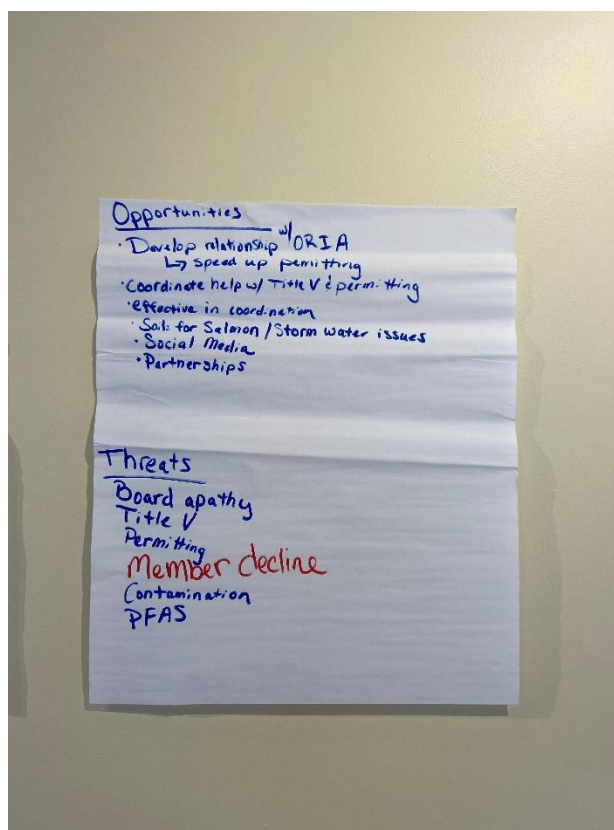 Opportunities
· Develop relationship w/ ORIA
↳ speed up permitting
· Coordinate help w/ Title V & permitting
· effective in coordination
· Soils for Salmon / Storm water issues
· Social Media
· Partnerships
Threats
Board apathy
Title V
Permitting
Member decline
Contamination
PFAS